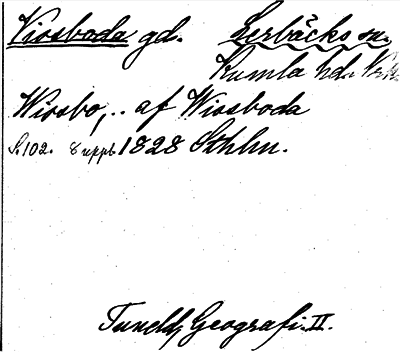 Wissboda gd. Lerbäcks sn.
Kumla hd. Nrk
Wissbo, .. af Wissboda
S. 102. 8 uppl 1828 Sthlm.
Tuneld, Geografi. II.